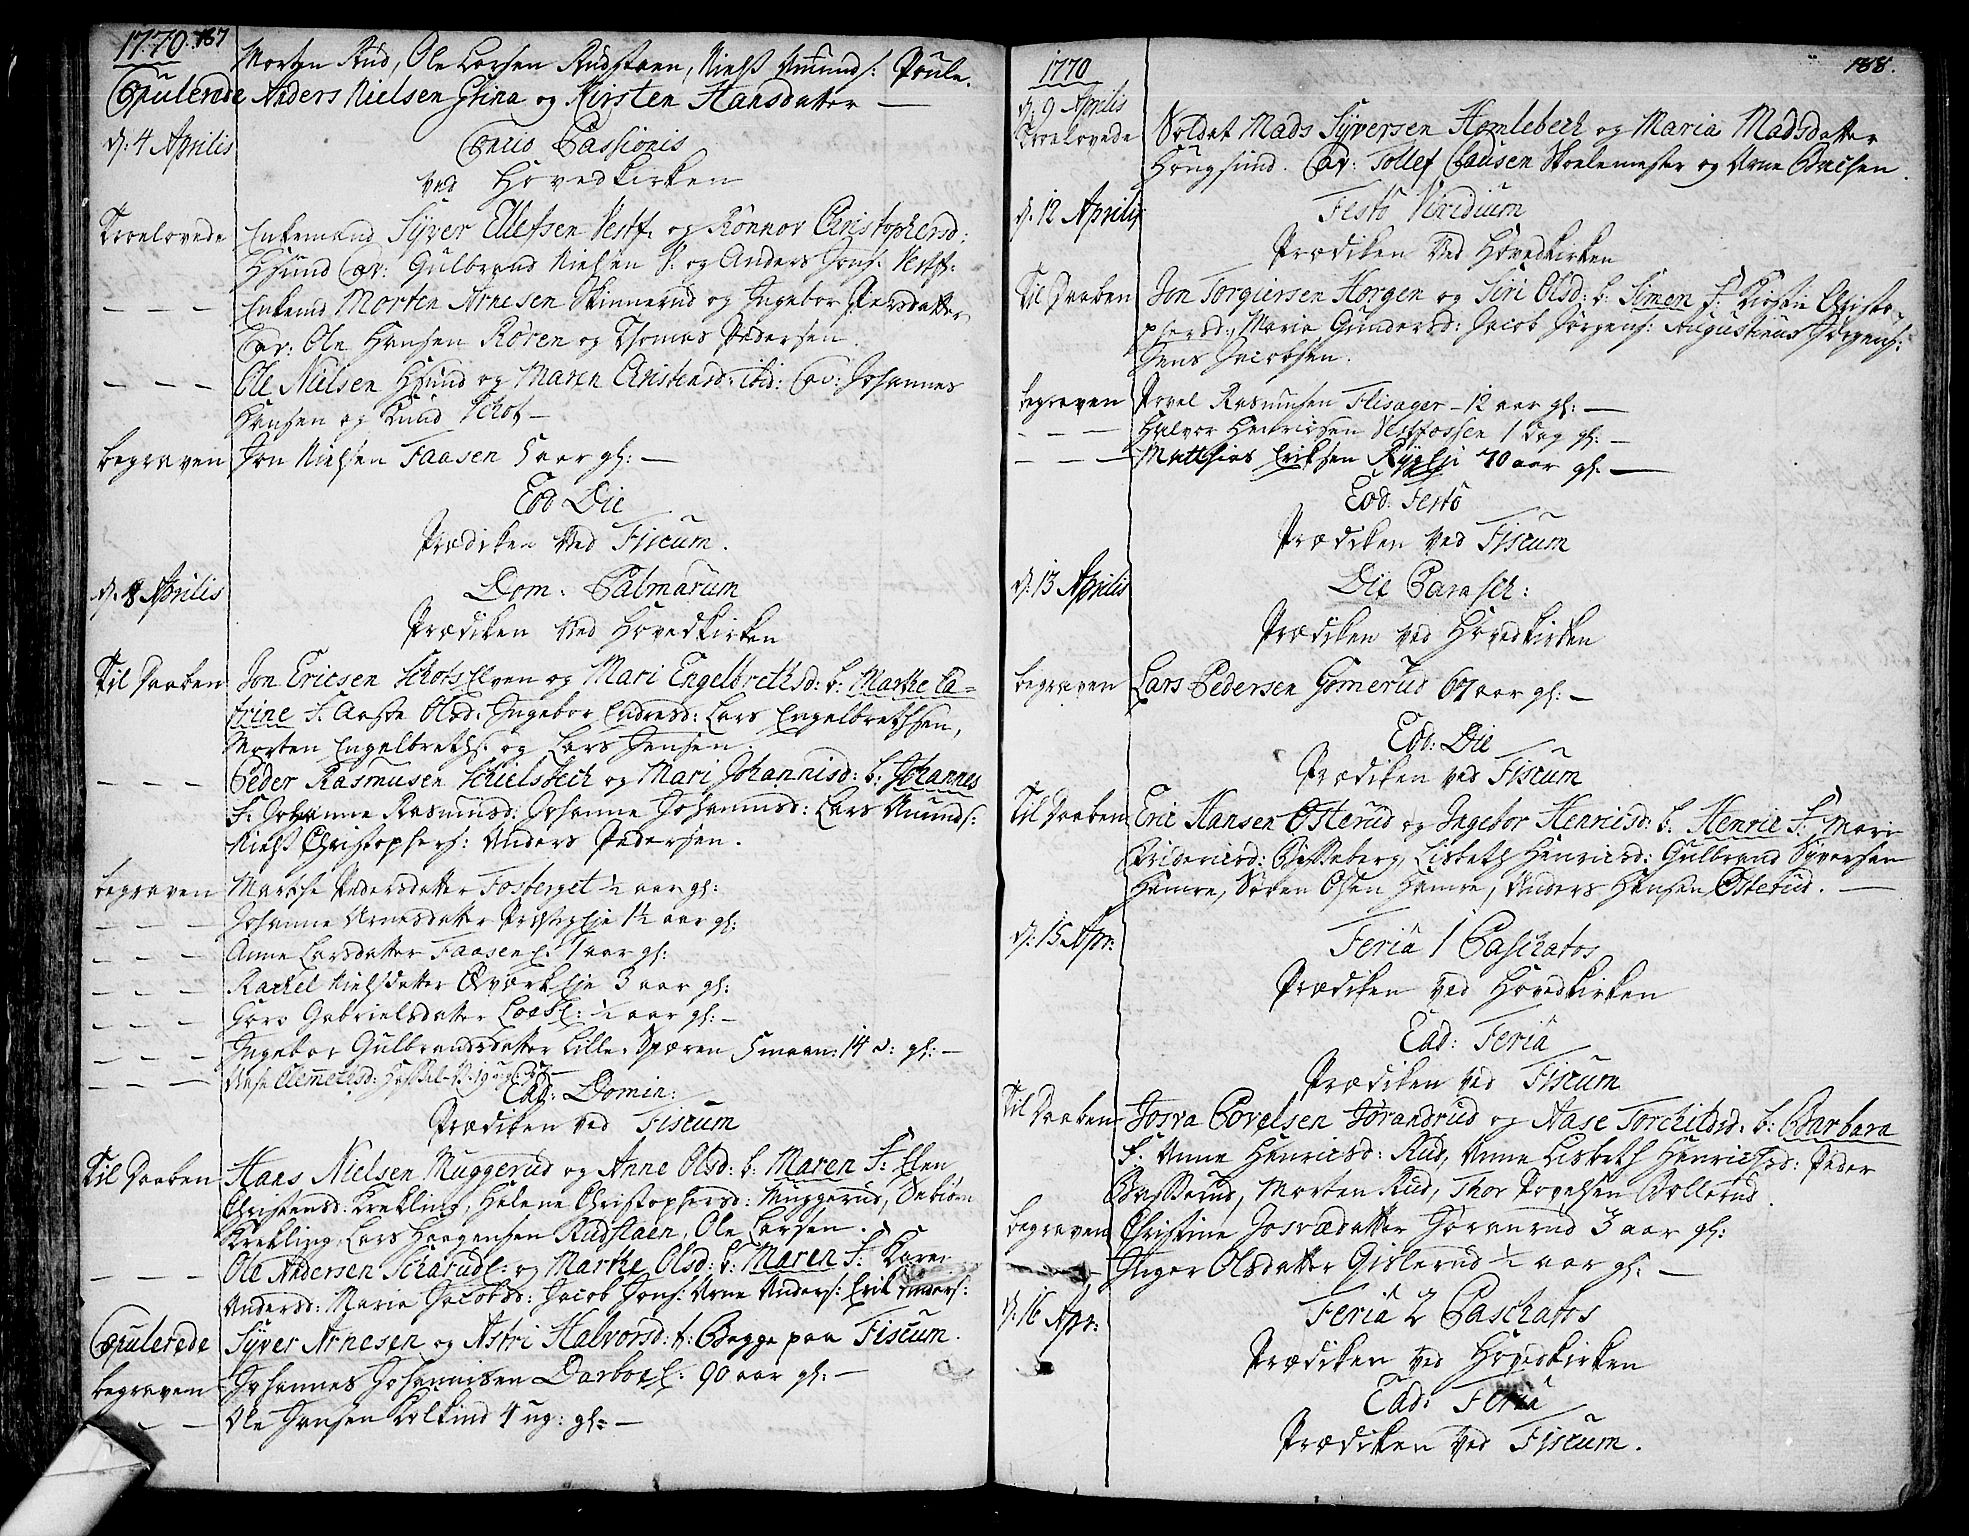 1770. 187
Morten Rud, Ole Larsen Rudstaen, Niels Amunds: Poule.
Copulerede Anders Nielsen Grina og Kirsten Hansdatter —
d: 4 Aprilis Concio Passionis
ved Hovedkirken
Troelovede Enkemand Syver Ellefsen Vestf. og Rønnov Christophersd:
Hsund Cav: Gulbrand Nielsen S. og Anders Jons: Vestf:
— — — Enkemd Morten Arnesen Skinnerud og Ingebor Piersdatter
Cav: Ole Hansen Røren og Thomas Pedersen.
— — — Ole Nielsen Hsund og Maren Christensd: ibid: Cav: Johannes
Hansen og Knud Schot —
begraven Jon Nielsen Faasen 5 aar gl: —
Eod Die
Prædiken ved Fiscum.
d. 8 Aprilis Dom. Palmarum
Prædiken ved Hovedkirken
Til Daaben Jon Ericsen Schots Elven og Mari Engelbrethsd: b: Marthe Ca-
trine F. Aaste Olsd: Ingebor Endresd: Lars Engelbrethsen,
Morten Engelbreths: og Lars Jensen.
— — — Peder Rasmusen Schielsbech og Mari Johannisd: b: Johannes
F: Johanne Rasmusd: Johanne Johannisd: Lars Amunds:
Niels Christophers: Anders Pedersen.
begraven Marthe Pedersdatter Fosberget ½ aar gl:
— — — Johanne Arnesdatter Præsteg Eje 1½ aar gl:
— — — Anne Larsdatter Faasen E: 1 aar gl:
— — — Rachel Nielsdatter Qværk Eje 3 aar gl:
— — — Goro Gabrielsdatter Loe E: ½ aar gl: —
— — — Ingebor Gulbrandsdatter Lille. Spæren 5 maan: 14 d: gl: —
— — — Clemetsd:
Ead: Domin:
Prædiken ved Fiscum
Til Daaben Hans Nielsen Muggerud og Anne Olsd: b: Maren F: Ellen
Christensd: Krekling, Helene Christophersd: Muggerud,
Krekling, Lars Haagensen Rudstaen, Ole Larsen.
— — — Ole Andersen Scharud E: og Marthe Olsd: b: Maren F: Karen
Andersd: Maria Jacobsd: Jacob Jons: Arne Anders: Erik Anders:
Copulerede Syver Arnesen og Astri Halvorsd: t: Begge paa Fiscum.
begraven Johannes Johannisen Darbo E: 90 aar gl: —
— — Ole Hansen Kolkind 4 ug: gl: —
1770 188.
d: 9 Aprilis
Troelovede Soldat Mads Syversen Hemlebech og Maria Madsdatter
Hougsund. Cav: Tollef Clausen Skoelemester og Arne
d: 12 Aprilis Festo Viridium
Prædiken ved Hovedkirken
Til Daaben Jon Torgiersen Horgen og Siri Olsd: b: Simen F: Kirstie Christo-
phersd:, Maria Gundersd: Jacob Jørgens: Augustinus Jørgens:
Jens Jacobsen.
begraven Povel Rasmusen Flisager — 12 aar gl: —
— — — Halvor Henricsen Vestfossen 1 Dag gl: —
— — — Matthias Eriksen Ryg Eje 70 aar gl: —
Eod: Festo
Prædiken ved Fiscum
d: 13 Aprilis Die Parasch:
Prædiken ved Hovedkirken
begraven Lars Pedersen Gomerud 67 aar gl: —
Eod: Die
Prædiken ved Fiscum
Til Daaben Eric Hansen Østerud og Ingebor Henricsd: b. Henric F: Mari
Fridericsd: Besseberg, Lisbeth Henricsd: Gulbrand Syversen
Hamre, Søren Olsen Hamre, Anders Hansen Østerud. —
d: 15 Apr: Feria 1 Paschatos
Prædiken ved Hovedkirken
Ead: Feria
Prædiken ved Fiscum
Til Daaben Josva Povelsen Jorandrud og Aase Torchildsd. b: Barbara
F. Anne Henricsd: Rud, Anne Lisbeth Henrichsd: Peder
Basserud, Morten Rud, Thor Povelsen Bollerud.
begraven Christine Josvædatter Joranrud 3 aar gl:
— Inger Olsdatter Gislerud ½ aar gl: —
d: 16 Apr: Feria 2 Paschatos
Prædiken ved Hovedkirken
Ead: Feria
Prædiken ved Fiscum.